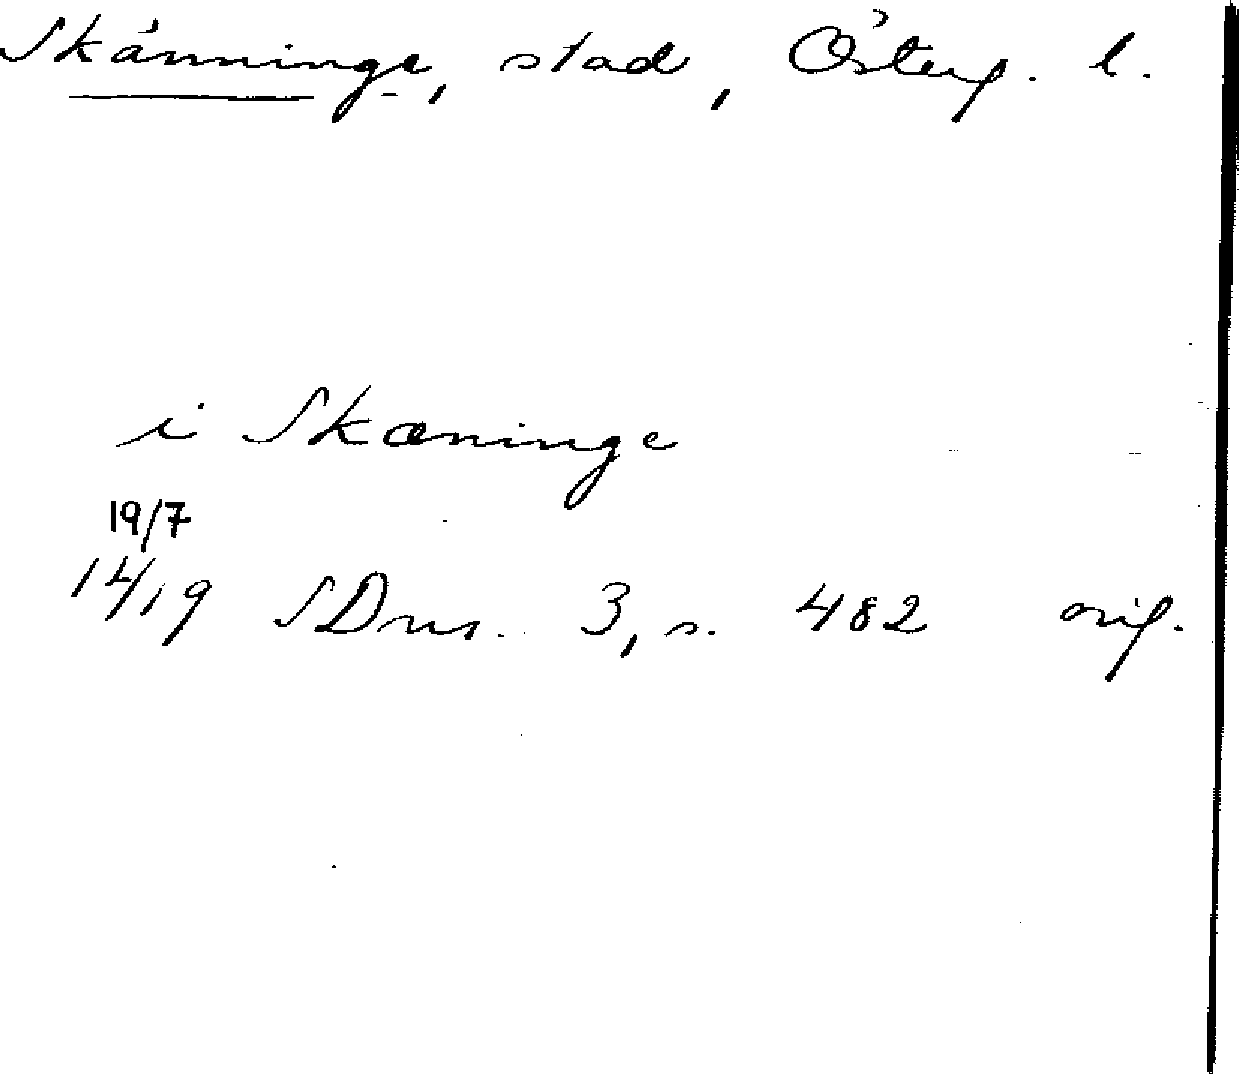 Skänninge, stad, Österg. l.
i Skæninge
19/7
14/19 SDns. 3, s. 482 orig.